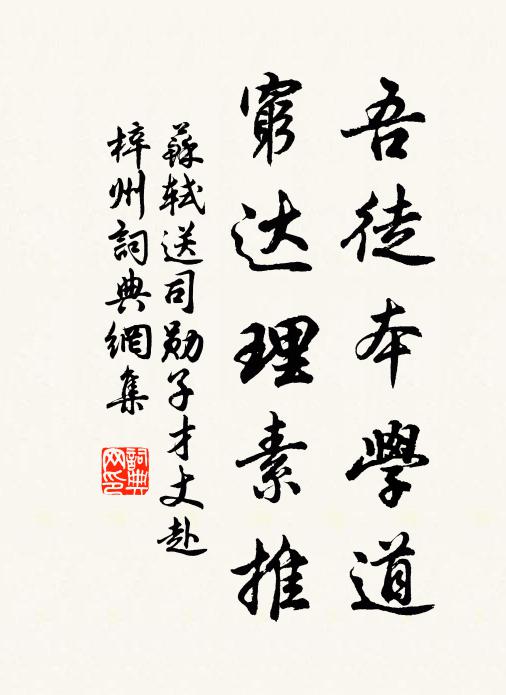 吾徒本學道
窮达理素推
蘇軾送司勛子才丈赴
梓州詞典網集
詞典
网印